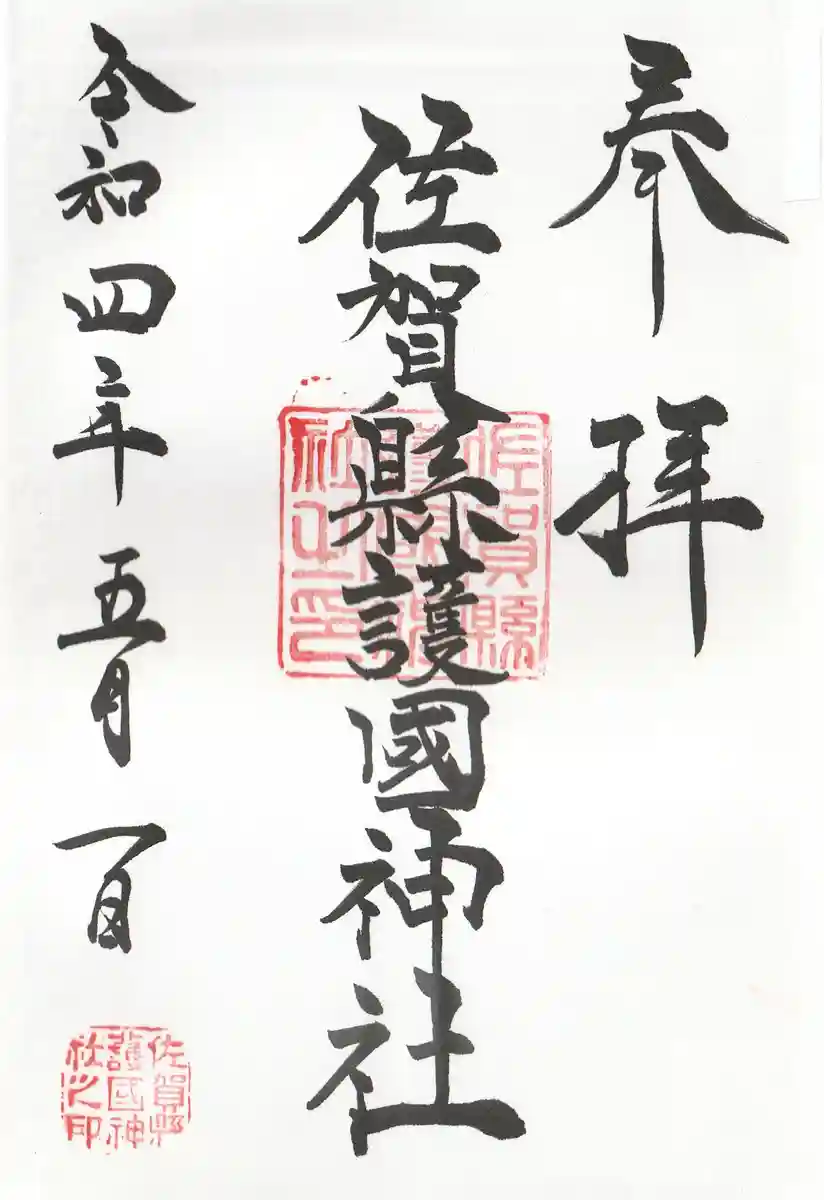 奉拝
佐賀縣護國神社
佐賀縣
護國神
社之印
令和四年五月一日
佐賀縣
護國神
社之印